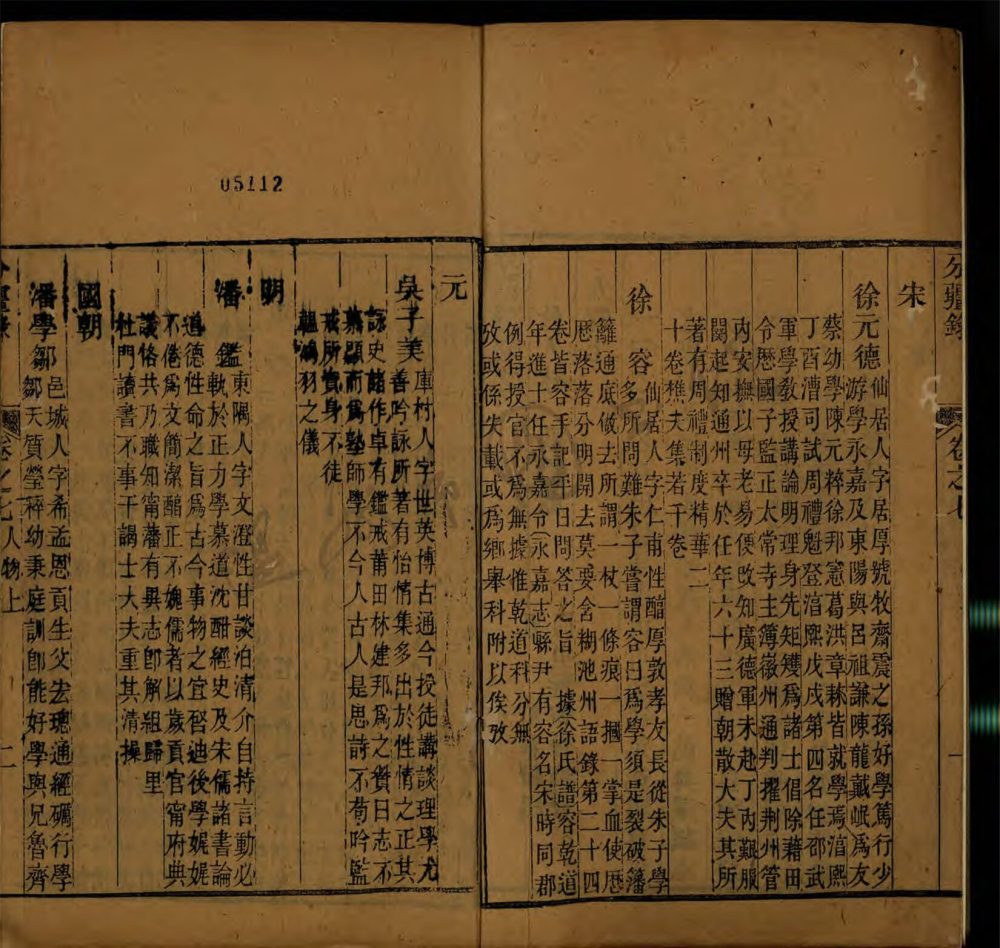 分疆錄
卷之七
一
宋
徐元德仙居人字居厚號牧齋震之孫好學篤行少
游學永嘉及東陽與呂祖謙陳龍戴岷為友
蔡幼學陳元粹徐邦憲葛洪章棶皆就學焉淯熈
丁酉漕司試周禮魁登淯熈戊戌第四名任邵武
軍學敎授講論明理身先矩矱爲諸士倡除藉田
令歷國子監正太常寺主簿徽州通判擢荆州管
內安撫以母老易便攺知廣德軍未赴丁內艱服
闋起知通州卒於任年六十三贈朝散大夫其所
著有周禮制度精華二
十卷樵夫集若干卷
徐容仙居人字仁甫性醕厚敦孝友長從朱子學
多所問難朱子嘗謂容曰爲學須是裂破藩
籬通底做去所謂一杖一條痕一摑一掌血使歷
歷落落分明開去莫要含糊池州語錄第二十四
卷皆容手記平日問答之旨據徐氏譜容乾道
年進士任永嘉令永嘉志縣尹有容名宋時同郡
例得授官不爲無據惟乾道科分無
攷或係失載或爲鄉舉科附以俟攷
元
吳子美庫村人字世英博古通今授徒講談理學尤
善吟詠所著有怡情集多出於性情之正其
詠史諸作卓有鑑戒莆田林建邦爲之賚日志不
慕顯而爲塾師學不今人古人是思詩不苟吟監
戒所寶身不徒
韞鴻羽之儀
明
潘鑑東隅人字文澄性甘談泊清介自持言動必
軌於正力學慕道沈酣經史及宋儒諸書論
道德性命之旨爲古今事物之宜啓迪後學娓娓
不倦爲文簡潔醕正不媿儒者以歲貢官甯府典
議恪共乃職知甯藩有異志卽解組歸里
杜門讀書不事干謁士大夫重其清操
國朝
潘學鄒邑城人字希孟恩貢生父去璁通經礪行學
鄒天質瑩稡幼秉庭訓卽能好學與兄魯齊
卷之七人物上
二
05112